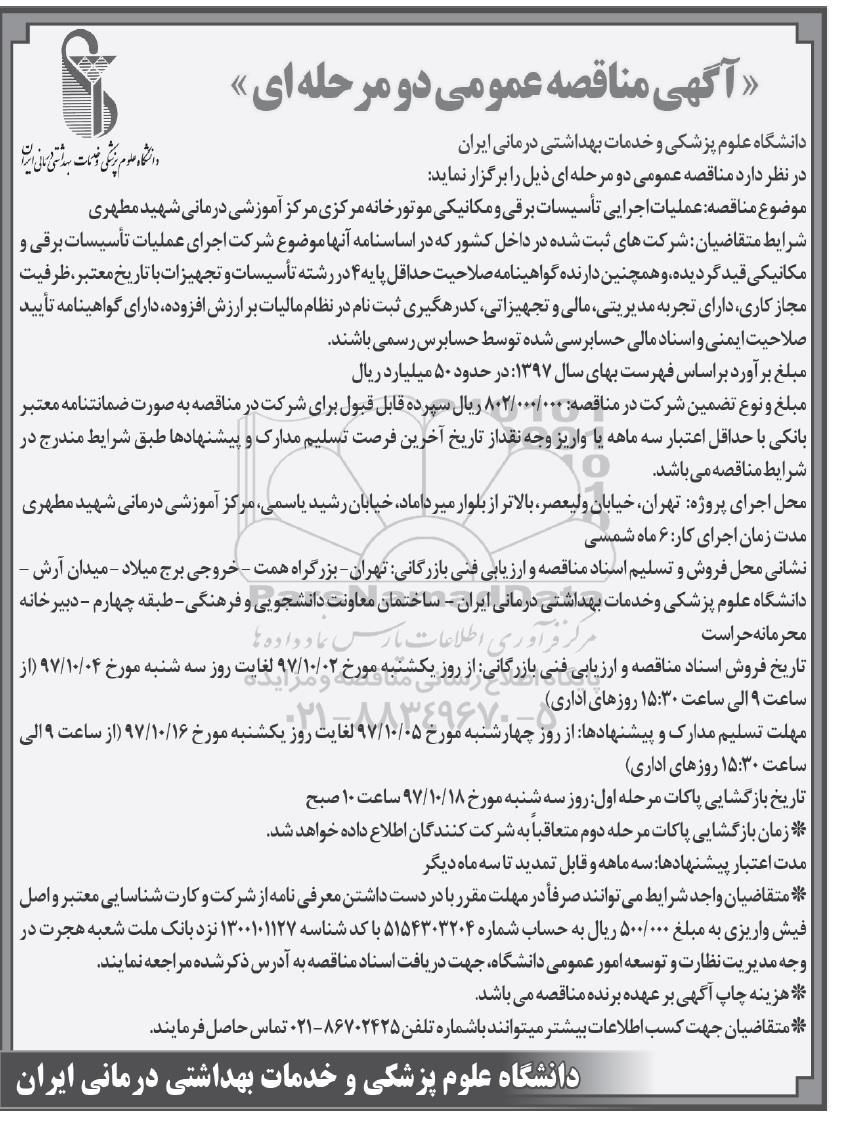 «آگهی مناقصه عمومی دو مرحله ای»
دانشگاه علوم پزشکی و خدمات بهداشتی درمانی ایران
دانشگاه علوم پزشکی و خدمات بهداشتی درمانی ایران
در نظر دارد مناقصه عمومی دو مرحله ای ذیل را برگزار نماید:
موضوع مناقصه: عملیات اجرایی تأسیسات برقی و مکانیکی موتورخانه مرکزی مرکز آموزشی درمانی شهید مطهری
شرایط متقاضیان: شرکت های ثبت شده در داخل کشور که در اساسنامه آنها موضوع شرکت اجرای عملیات تأسیسات برقی و
مکانیکی قید گردیده، وهمچنین دارنده گواهینامه صلاحیت حداقل پایه ۴ در رشته تأسیسات و تجهیزات با تاریخ معتبر، ظرفیت
مجاز کاری، دارای تجربه مدیریتی، مالی و تجهیزاتی، کدرهگیری ثبت نام در نظام مالیات بر ارزش افزوده، دارای گواهینامه تأیید
صلاحیت ایمنی و اسناد مالی حسابرسی شده توسط حسابرس رسمی باشند.
مبلغ برآورد براساس فهرست بهای سال ۱۳۹۷: در حدود ۵۰ میلیارد ریال
مبلغ و نوع تضمین شرکت در مناقصه: ۸۰۲/۰۰۰/۰۰۰ ریال سپرده قابل قبول برای شرکت در مناقصه به صورت ضمانتنامه معتبر
بانکی با حداقل اعتبار سه ماهه یا واریز وجه نقداز تاریخ آخرین فرصت تسلیم مدارک و پیشنهادها طبق شرایط مندرج در
شرایط مناقصه می باشد.
محل اجرای پروژه: تهران، خیابان ولیعصر، بالاتر از بلوار میرداماد، خیابان رشید یاسمی، مرکز آموزشی درمانی شهید مطهری
مدت زمان اجرای کار: ۶ ماه شمسی
نشانی محل فروش و تسلیم اسناد مناقصه و ارزیابی فنی بازرگانی: تهران- بزرگراه همت - خروجی برج میلاد - میدان آرش -
دانشگاه علوم پزشکی وخدمات بهداشتی درمانی ایران - ساختمان معاونت دانشجویی و فرهنگی- طبقه چهارم - دبیرخانه
محرمانه حراست
تاریخ فروش اسناد مناقصه و ارزیابی فنی بازرگانی: از روز یکشنبه مورخ ۹۷/۱۰/۰۲ لغایت روز سه شنبه مورخ ۹۷/۱۰/۰۴ (از
ساعت ۹ الی ساعت ۱۵:۳۰ روزهای اداری)
مهلت تسلیم مدارک و پیشنهادها: از روز چهارشنبه مورخ ۹۷/۱۰/۰۵ لغایت روز یکشنبه مورخ ۹۷/۱۰/۱۶ (از ساعت ۹ الی
ساعت ۱۵:۳۰ روزهای اداری)
تاریخ بازگشایی پاکات مرحله اول: روز سه شنبه مورخ ۹۷/۱۰/۱۸ ساعت ۱۰ صبح
* زمان بازگشایی پاکات مرحله دوم متعاقباً به شرکت کنندگان اطلاع داده خواهد شد.
مدت اعتبار پیشنهادها: سه ماهه و قابل تمدید تا سه ماه دیگر
* متقاضیان واجد شرایط می توانند صرفأ در مهلت مقرر با در دست داشتن معرفی نامه از شرکت و کارت شناسایی معتبر و اصل
فیش واریزی به مبلغ ۵۰۰/۰۰۰ ریال به حساب شماره ۵۱۵۴۳۰۳۲۰۴ با کد شناسه ۱۳۰۰۱۰۱۱۲۷ نزد بانک ملت شعبه هجرت در
وجه مدیریت نظارت و توسعه امور عمومی دانشگاه، جهت دریافت اسناد مناقصه به آدرس ذکر شده مراجعه نمایند.
* هزینه چاپ آگهی بر عهده برنده مناقصه می باشد.
* متقاضیان جهت کسب اطلاعات بیشتر میتوانند باشماره تلفن ۸۶۷۰۲۴۲۵-۰۲۱ تماس حاصل فرمایند.
دانشگاه علوم پزشکی و خدمات بهداشتی درمانی ایران
ParsNamadData
مرکز فرآوری اطلاعات پارس نماد داده ها
پایگاه اطلاع رسانی مناقصه و مزایده
۰۲۱-۸۸۳۴۹۶۷۰-۵